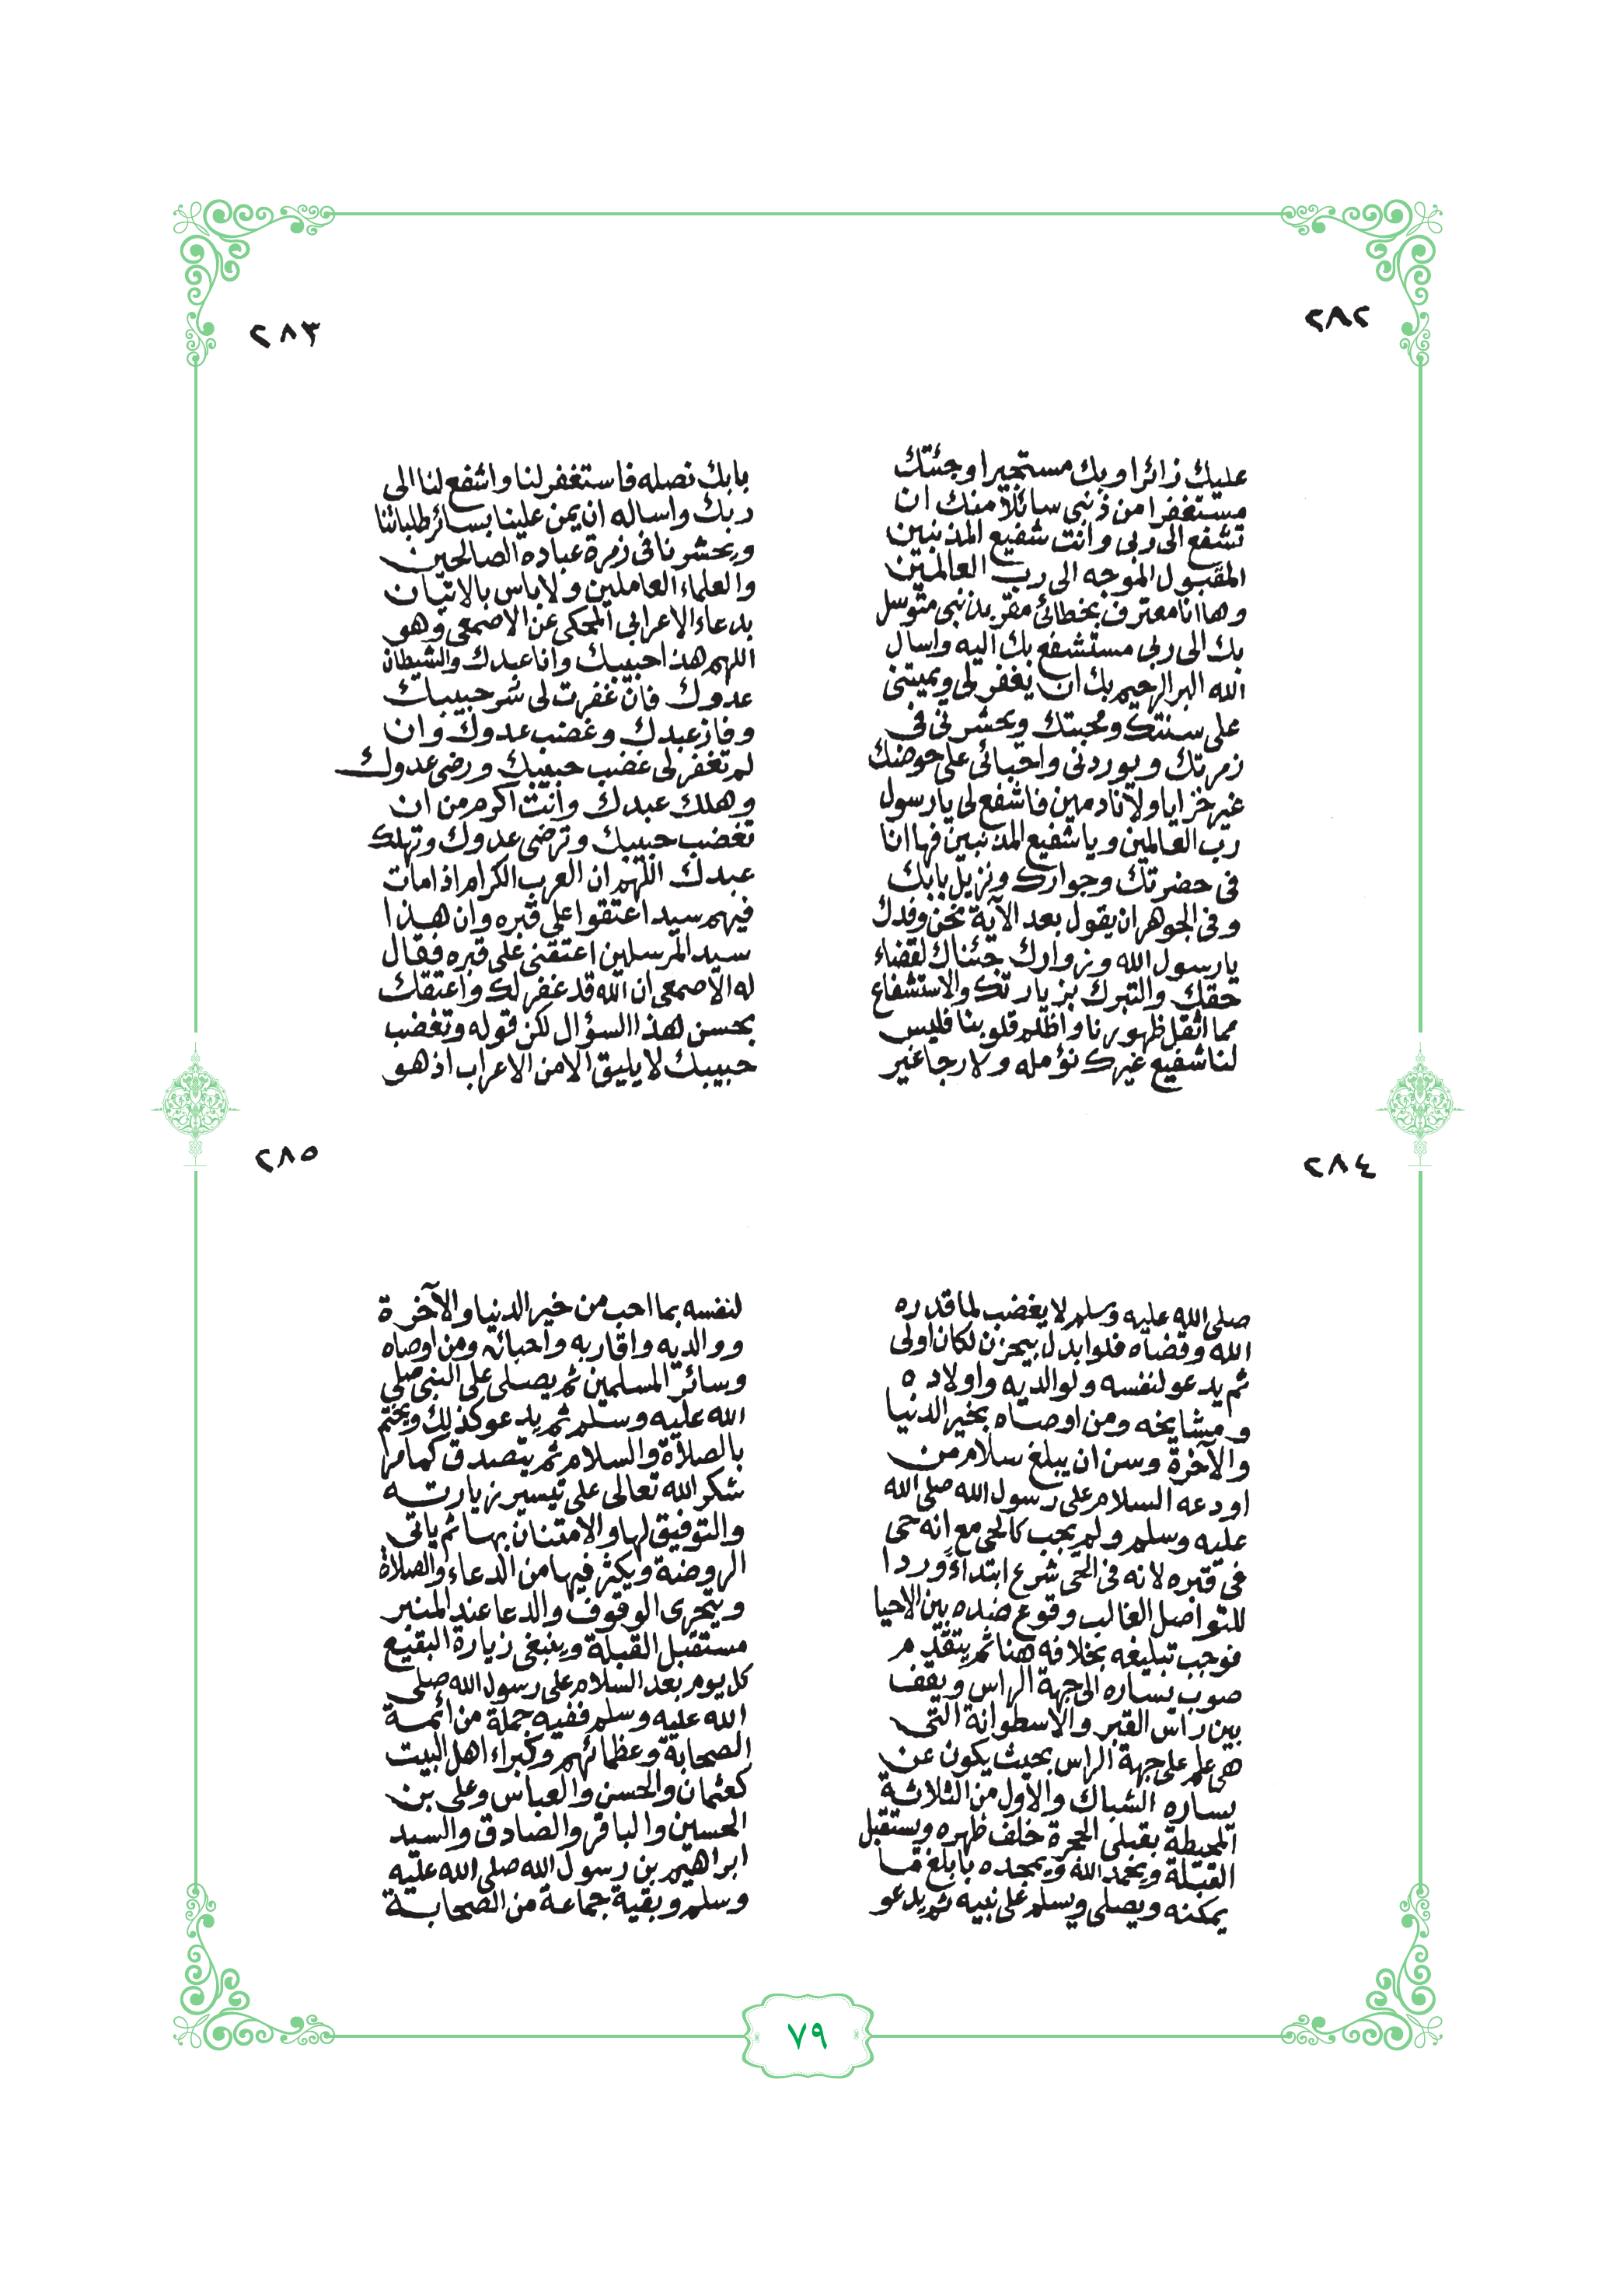 ٢٨٢
عليك زائرا وبك مستجيرا وجئتك
مستغفرا من ذنبى سائلا منك ان
تشفع الى ربى وانت شفيع المذنبين
المقبول الموجه الى رب العالمين
وها انا معترف بخطائى مقر بذنبى متوسل
بك الى ربى مستشفع بك اليه واسال
الله البر الرحيم بك ان يغفر لى ويميتنى
على سنتك ومحبتك ويحشرنى فى
زمرتك ويوردنى واحبائى على حوضك
غير خزايا ولا نادمين فاشفع لى يا رسول
رب العالمين ويا شفيع المذنبين فها انا
فى حضرتك وجوارك ونزيل بابك
وفى الجوهر ان يقول بعد الآية نحن وفدك
يا رسول الله وزوارك جئناك لقضاء
حقك والتبرك بزيارتك والاستشفاع
مما اثقل ظهورنا واظلم قلوبنا فليس
لنا شفيع غيرك نؤمله ولا رجا غير
٢٨٣
بابك نصله فاستغفر لنا واشفع لنا الى
ربك واساله ان يمن علينا بسائر طلباتنا
ويحشرنا فى زمرة عباده الصالحين
والعلماء العاملين ولا باس بالاتيان
بدعاء الاعرابى المحكى عن الاصمعى وهو
اللهم هذا حبيبك وانا عبدك والشيطان
عدوك فان غفرت لى سر حبيبك
وفاز عبدك وغضب عدوك وان
لم تغفر لى غضب حبيبك ورضى عدوك
وهلك عبدك وانت اكرم من ان
تغضب حبيبك وترضى عدوك وتهلك
عبدك اللهم ان العرب الكرام اذا مات
فيهم سيد اعتقوا على قبره وان هذا
سيد المرسلين اعتقنى على قبره فقال
له الاصمعى ان الله قد غفر لك واعتقك
بحسن لهذا السؤال لكن قوله وتغضب
حبيبك لا يليق الا من الاعراب اذ هو
٢٨٤
صلى الله عليه وسلم لا يغضب لما قدره
الله وقضاه فلو ابدل بيحزن لكان اولى
ثم يدعو لنفسه ولوالديه واولاده
ومشايخه ومن اوصاه بخير الدنيا
والآخرة وسن ان يبلغ سلام من
اودعه السلام على رسول الله صلى الله
عليه وسلم ولم يجب كالحى مع انه حى
فى قبره لانه فى الحى شرع ابتداءً وردا
للتواصل الغالب وقوع ضده بين الاحيا
فوجب تبليغه بخلافه هنا ثم يتقدم
صوب يساره الى جهة الراس ويقف
بين راس القبر والاسطوانة التى
هى علم على جهة الراس بحيث يكون عن
يساره الشباك والاول من الثلاثة
المحيطة بقبلى الحجرة خلف ظهره ويستقبل
القبلة ويحمد الله ويمجده بابلغ ما
يمكنه ويصلى ويسلم على نبيه ثم يدعو
٢٨٥
لنفسه بما احب من خير الدنيا والآخرة
ووالديه واقاربه واحبائه ومن اوصاه
وسائر المسلمين ثم يصلى على النبى صلى
الله عليه وسلم ثم يدعو كذلك ويختم
بالصلاة والسلام ثم يتصدق كما مر
شكر الله تعالى على تيسير زيارته
والتوفيق لها والامتنان بها ثم ياتى
الروضة ويكثر فيها من الدعاء والصلاة
ويتحرى الوقوف والدعا عند المنبر
مستقبل القبلة وينبغى زيارة البقيع
كل يوم بعد السلام على رسول الله صلى
الله عليه وسلم ففيه جملة من أئمة
الصحابة وعظمائهم وكبراء اهل البيت
كعثمان والحسن والعباس وعلى بن
الحسين والباقر والصادق والسيد
ابراهيم بن رسول الله صلى الله عليه
وسلم وبقية جماعة من الصحابة
٧٩